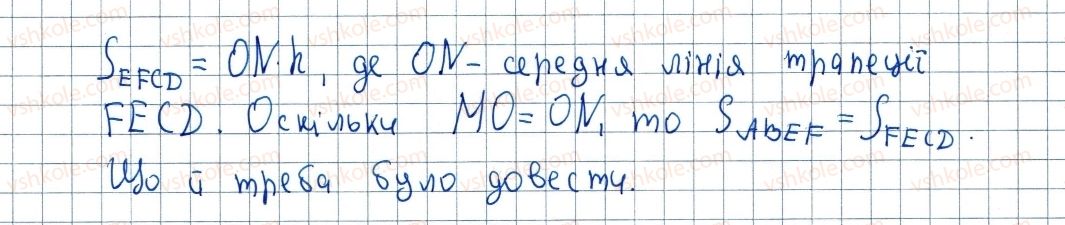 S_EFCD = ON·h, де ON - середня лінія трапеції
FECD. Оскільки MO = ON, то S_ABEF = S_FECD.
Що й треба було довести.